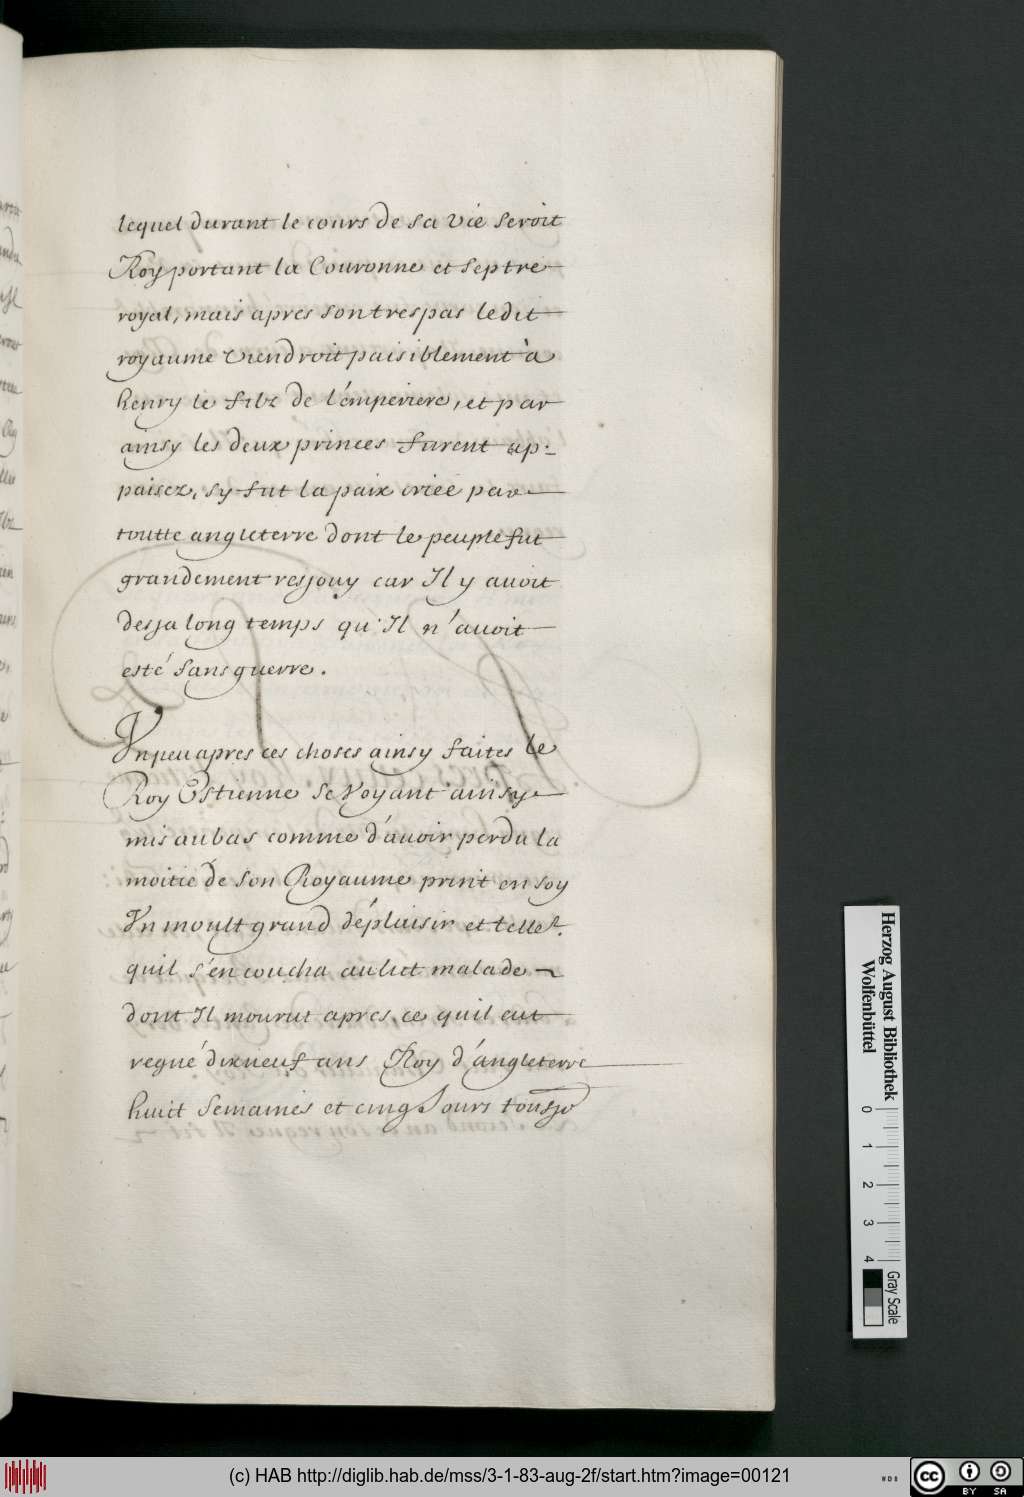 lequel durant le cours de sa vie seroit
Roy portant la Couronne et septre
royal, mais apres son trespas ledit
royaume viendroit paisiblement à
henry le filz de l'émperiere, et par
ainsy les deux princes furent ap:
paisez, sy fut la paix criée par
toutte angleterre dont le peuple fut
grandement resjouy car Il y avoit
desja long temps qu'Il n'avoit
esté sans guerre.
Vn peu apres ces choses ainsy faites le
Roy Estienne se voyant ainsy
mis au bas comme d'avoir perdu la
moitié de son Royaume print en soy
Vn moult grand déplaisir et telle
quil s'en coucha au lict malade
dont Il mourut apres, ce quil eut
regné dixneuf ans Roy d'angleterre
huict semaines et cinq Jours
Herzog August Bibliothek
Wolfenbüttel
0 1 2 3 4
Gray Scale
(c) HAB http://diglib.hab.de/mss/3-1-83-aug-2f/start.htm?image=00121
WDB
CC BY SA